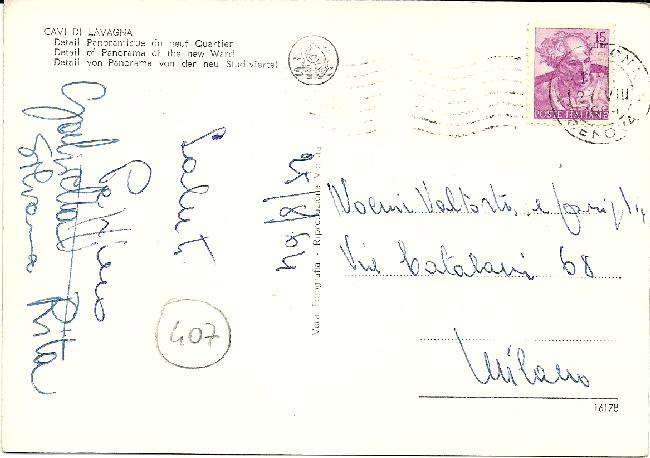 CAVI DI LAVAGNA
Detail Panoramique du neuf Quartier
Detail of Panorama of the new Ward
Detail von Panorama von der neu Stadtviertel
15
POSTE ITALIANE
VIII
GENOVA
Saluti
25/8/64
Silvana Rita
407
Vera Fotografia - Riproduzione Vietata
Noemi Valtorta e famiglia
Via Catalani 68
Milano
16178